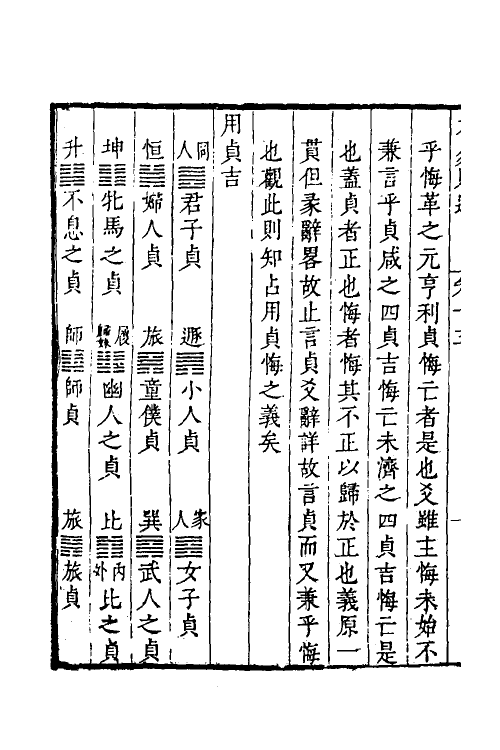 乎悔革之元亨利貞悔亡者是也爻雖主悔未始不
兼言乎貞咸之四貞吉悔亡未濟之四貞吉悔亡是
也蓋貞者正也悔者悔其不正以歸於正也義原一
貫但彖辭畧故止言貞爻辭詳故言貞而又兼乎悔
也觀此則知占用貞悔之義矣
用貞吉
同人䷌君子貞 遯䷠小人貞 家人䷤女子貞
恒䷟婦人貞 旅䷷童僕貞 巽䷸武人之貞
坤䷁牝馬之貞 履歸妹幽人之貞 比䷇内外比之貞
升䷭不息之貞 師䷆師貞 旅䷷旅貞